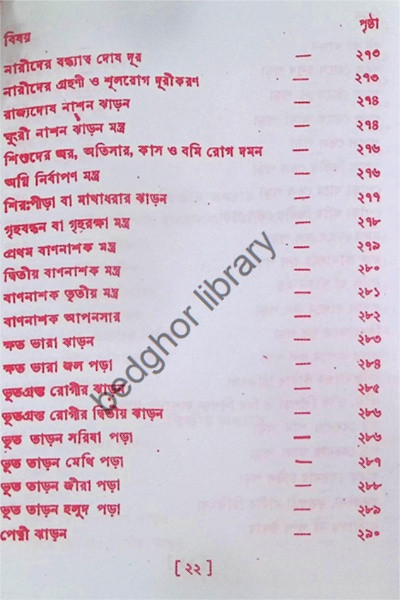 বিষয় পৃষ্ঠা
নারীদের বন্ধ্যাত্ব দোষ দূর — ২৭৩
নারীদের গ্রহণী ও শূলরোগ দূরীকরণ — ২৭৩
রাজ্যদোষ নাশন ঝাড়ন — ২৭৪
ক্ষুরী নাশন ঝাড়ন মন্ত্র — ২৭৪
শিশুদের জ্বর, অতিসার, কাস ও বমি রোগ দমন — ২৭৬
অগ্নি নির্বাপণ মন্ত্র — ২৭৬
শিরঃপীড়া বা মাথাধরার ঝাড়ন — ২৭৭
গৃহবন্ধন বা গৃহরক্ষা মন্ত্র — ২৭৮
প্রথম বাণনাশক মন্ত্র — ২৭৯
দ্বিতীয় বাণনাশক মন্ত্র — ২৮০
বাণনাশক তৃতীয় মন্ত্র — ২৮১
বাণনাশক আপনসার — ২৮২
ক্ষত ভারা ঝাড়ন — ২৮৩
ক্ষত ভারা জল পড়া — ২৮৪
ভূতগ্রস্ত রোগীর ঝাড়ন — ২৮৫
ভূতগ্রস্ত রোগীর দ্বিতীয় ঝাড়ন — ২৮৬
ভূত তাড়ন সরিষা পড়া — ২৮৬
ভূত তাড়ন মেথি পড়া — ২৮৭
ভূত তাড়ন জীরা পড়া — ২৮৮
ভূত তাড়ন হলুদ পড়া — ২৮৯
পেত্নী ঝাড়ন — ২৯০
[ ২২ ]
bedghor library